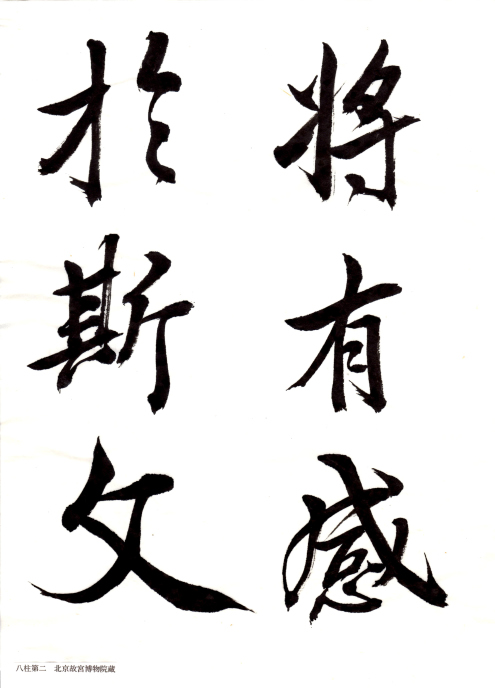 将有感
於斯文
八柱第二　北京故宮博物院蔵